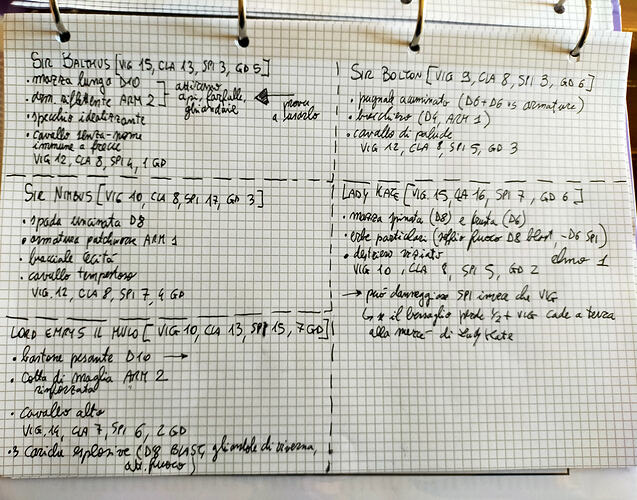 SIR BALTHUS [VIG 15, CLA 13, SPI 3, GD 5]
• mazza lunga D10
• arm. riflettente ARM 2
attirano api, farfalle, ghiandaie
prova a usarlo
• specchio idealizzante
• cavallo senza-nome
immune a frecce
VIG 12, CLA 8, SPI 4, 1 GD
SIR NIMBUS [VIG 10, CLA 8, SPI 17, GD 3]
• spada uncinata D8
• armatura patchwork ARM 1
• bracciale
• cavallo tempestoso
VIG. 12, CLA 8, SPI 7, 4 GD
LORD EMRYS IL MULO [VIG 10, CLA 13, SPI 15, 7 GD]
• bastone pesante D10 →
• cotta di maglia ARM 2
rinforzata
• cavallo alto
VIG. 14, CLA 7, SPI 6, 2 GD
• 3 cariche esplosive (D8 BLAST, ghiandole di viverna,
att. fuoco)
SIR BOLTON [VIG 9, CLA 8, SPI 3, GD 6]
• pugnale acuminato (D6 + D6 vs armature)
• brocchiero (D4, ARM 1)
• cavallo di palude
VIG 12, CLA 8, SPI 5, GD 3
LADY KATE [VIG 15, CLA 16, SPI 7, GD 6]
• mazza spinata (D8) e frusta (D6)
• erbe particolari (soffio fuoco D8 blast, -D6 SPI)
• destriero viziato
elmo 1
VIG 10, CLA 8, SPI 5, GD 2
→ può danneggiare SPI invece che VIG
↳ se il bersaglio perde 1/2 + VIG cade a terza
alla mercé di Lady Kate